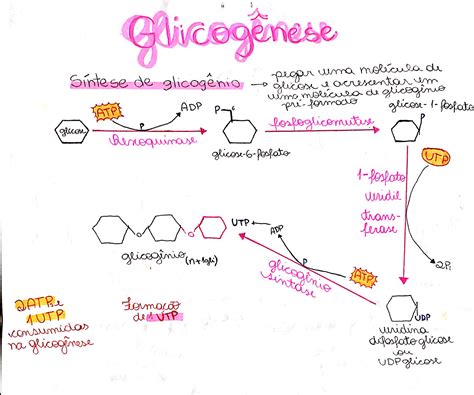 Glicogênese
Síntese de glicogênio → pegar uma molécula de
glicose e acrescentar em
uma molécula de glicogênio
pré-formado
glicose-1-fosfato
ATP
ADP
P
P
P
glicose
Hexoquinase
glicose-6-fosfato
fosfoglicomutase
UTP
1-fosfato
uridil
trans-
ferase
2Pi
UTP +
ADP
P
ATP
glicogênio
sintase
glicogênio
UDP
uridina
difosfato glicose
ou
UDPglicose
2ATP e
1UTP
consumidas
na glicogênese
Formação
de 1 UTP